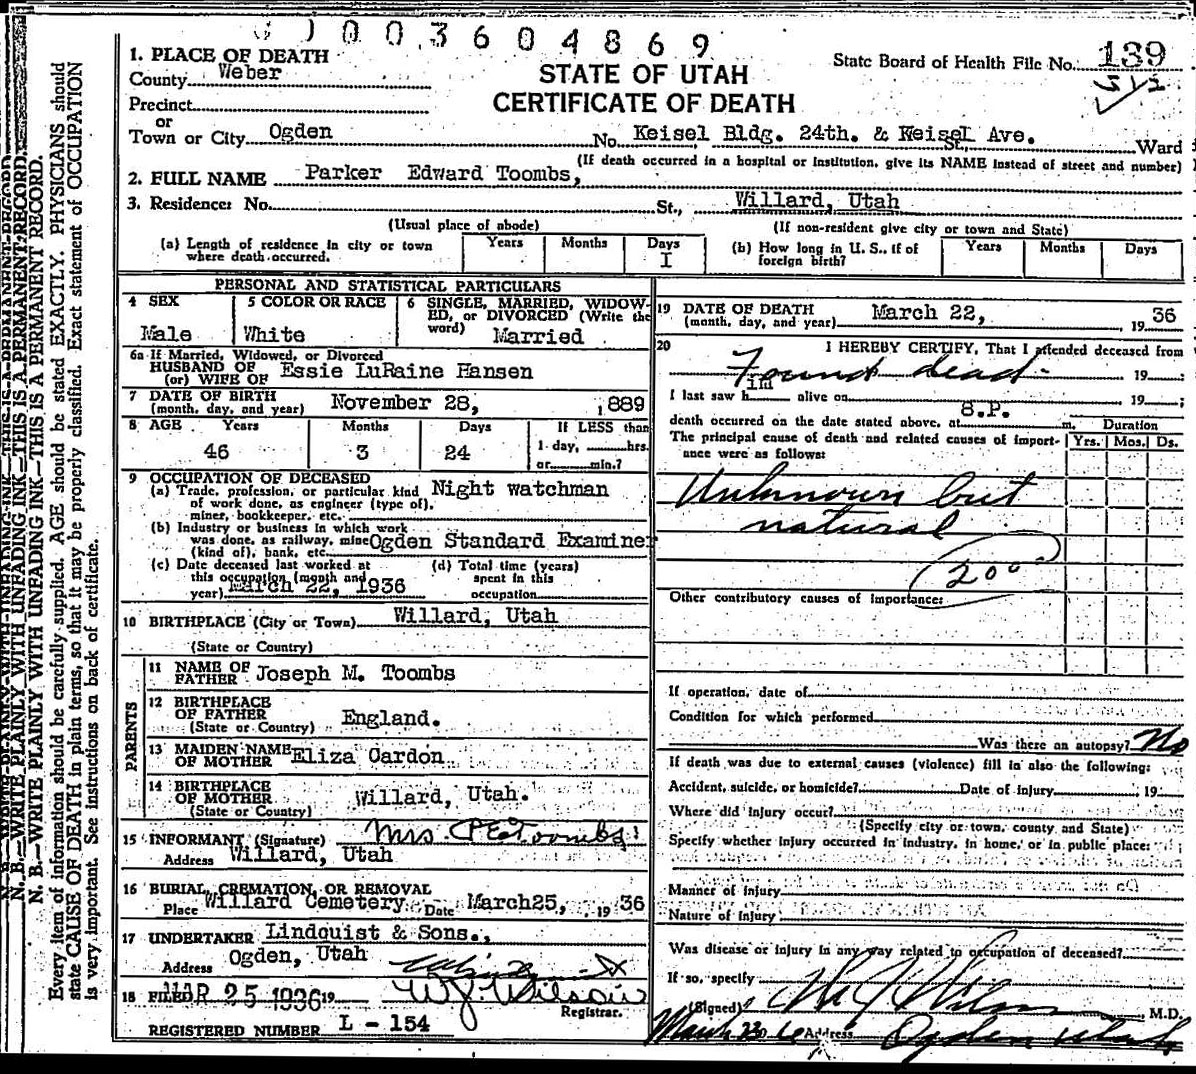 0 0 0 3 6 0 4 8 6 9
STATE OF UTAH
CERTIFICATE OF DEATH
State Board of Health File No. 139
512
1. PLACE OF DEATH
County Weber
Precinct
or
Town or City Ogden No. Keisel Bldg. 24th. & Keisel Ave. St., Ward
(If death occurred in a hospital or institution, give its NAME instead of street and number)
2. FULL NAME Parker Edward Toombs,
3. Residence: No. St., Willard, Utah
(Usual place of abode) (If non-resident give city or town and State)
(a) Length of residence in city or town where death occurred. Years Months Days I
(b) How long in U. S., if of foreign birth? Years Months Days
PERSONAL AND STATISTICAL PARTICULARS
4 SEX Male
5 COLOR OR RACE White
6 SINGLE, MARRIED, WIDOWED, or DIVORCED (Write the word) Married
6a If Married, Widowed, or Divorced
HUSBAND OF Essie LuRaine Hansen
(or) WIFE OF
7 DATE OF BIRTH
(month, day, and year) November 28, 1889
8 AGE Years 46 Months 3 Days 24 If LESS than
1 day, hrs.
or min.?
9 OCCUPATION OF DECEASED
(a) Trade, profession, or particular kind of work done, as engineer (type of), miner, bookkeeper, etc. Night watchman
(b) Industry or business in which work was done, as railway, mine (kind of), bank, etc. Ogden Standard Examiner
(c) Date deceased last worked at this occupation (month and year) March 22, 1936
(d) Total time (years) spent in this occupation
10 BIRTHPLACE (City or Town) Willard, Utah
(State or Country)
PARENTS
11 NAME OF FATHER Joseph M. Toombs
12 BIRTHPLACE OF FATHER England.
(State or Country)
13 MAIDEN NAME OF MOTHER Eliza Cardon
14 BIRTHPLACE OF MOTHER Willard, Utah.
(State or Country)
15 INFORMANT (Signature) Mrs P E Toombs
Address Willard, Utah
16 BURIAL, CREMATION, OR REMOVAL
Place Willard Cemetery Date March25, 1936
17 UNDERTAKER Lindquist & Sons.,
Address Ogden, Utah
18 FILED MAR 25 1936 19 W J Wilson
Registrar.
REGISTERED NUMBER L - 154
19 DATE OF DEATH
(month, day, and year) March 22, 1936
20 I HEREBY CERTIFY, That I attended deceased from
Found dead 19 ;
I last saw him alive on 19 ;
death occurred on the date stated above, at 8.P. m. Duration
The principal cause of death and related causes of importance were as follows: Yrs. Mos. Ds.
Unknown but
natural
200
Other contributory causes of importance:
If operation, date of
Condition for which performed
Was there an autopsy? No
If death was due to external causes (violence) fill in also the following:
Accident, suicide, or homicide? Date of injury 19
Where did injury occur?
(Specify city or town, county and State)
Specify whether injury occurred in industry, in home, or in public place:
Manner of injury
Nature of injury
Was disease or injury in any way related to occupation of deceased?
If so, specify
(Signed) W J Wilson M.D.
March 23 Address Ogden Utah
N. B.—WRITE PLAINLY WITH UNFADING INK—THIS IS A PERMANENT RECORD.
Every item of information should be carefully supplied. AGE should be stated EXACTLY. PHYSICIANS should
state CAUSE OF DEATH in plain terms, so that it may be properly classified. Exact statement of OCCUPATION
is very important. See instructions on back of certificate.